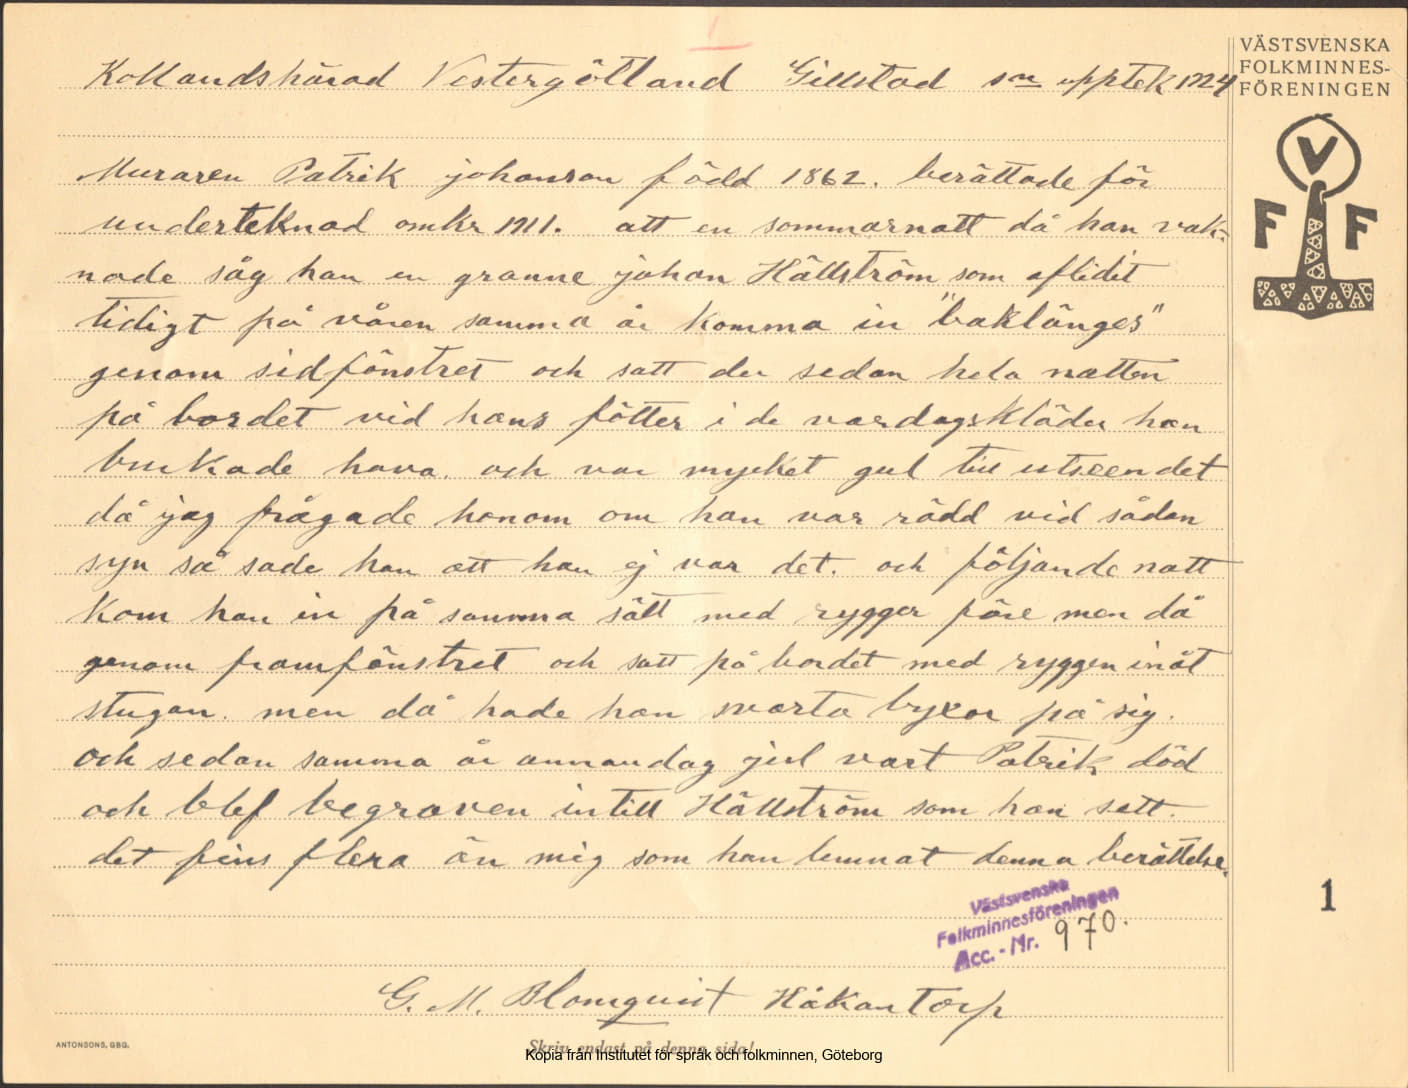 1
Kollandshärad Vestergötland Gillstad sn upptek 1924
VÄSTSVENSKA
FOLKMINNES-
FÖRENINGEN
V
F F
Muraren Patrik johanson född 1862. berättade för
underteknad omkr 1911. att en sommarnatt då han vak-
nade såg han en granne johan Hällström som aflidit
tidigt på våren samma år komma in "baklänges"
genom sidfönstret och satt der sedan hela natten
på bordet vid hans fötter i de vardagskläder han
brukade hava. och var mycket gul till utseendet
då jag frågade honom om han var rädd vid sådan
syn så sade han att han ej var det. och följande natt
kom han in på samma sätt med ryggen före men då
genom framfönstret och satt på bordet med ryggen inåt
stugan. men då hade han svarta byxor på sig.
och sedan samma år annandag jul vart Patrik död
och blef begraven intill Hällström som han sett.
det fins flera än mig som han lemnat denna berättelse.
1
Västsvenska
Folkminnesföreningen
Acc. - Nr. 970.
G. M. Blomqvist Håkantorp
ANTONSONS, GBG.
Skriv endast på denna sida!
Kopia från Institutet för språk och folkminnen, Göteborg